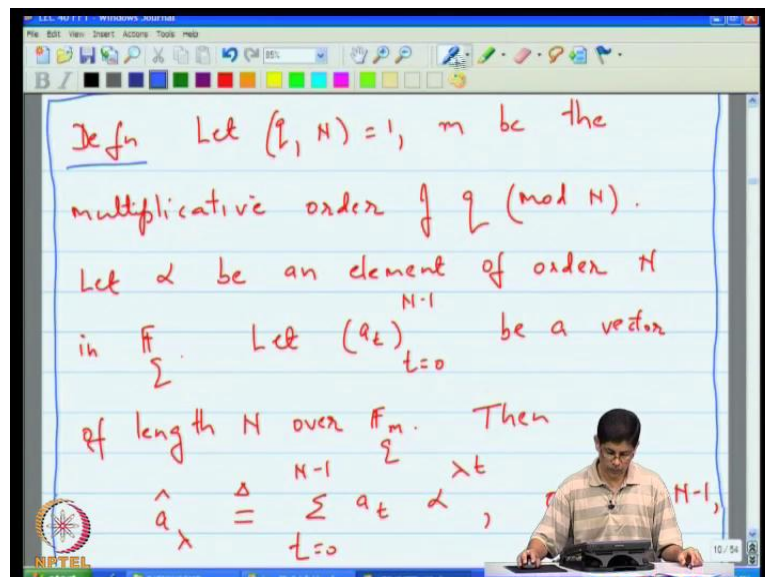 LEC 40 PPT - Windows Journal
File Edit View Insert Actions Tools Help
85%
B I
Defn Let (q, N) = 1, m be the
multiplicative order of q (mod N).
Let α be an element of order N
in F_q. Let (a_t)_{t=0}^{N-1} be a vector
of length N over F_{q^m}. Then
â_λ ≜ Σ_{t=0}^{N-1} a_t α^{λt}, N-1,
NPTEL
10 / 54